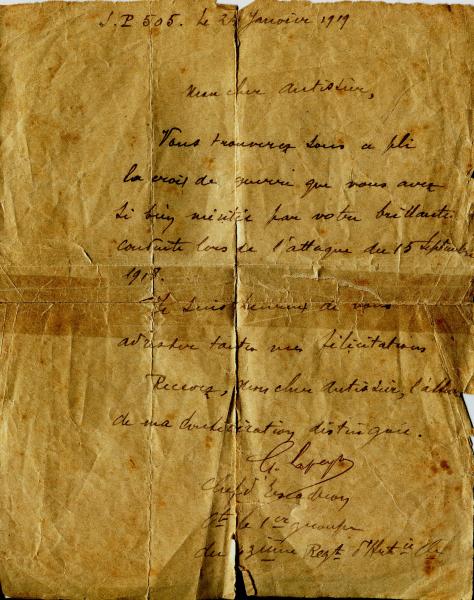 S.P 505. Le 2 Janvier 1919
Mon cher Autissier,
Vous trouverez sous ce pli
la croix de guerre que vous avez
si bien méritée par votre brillante
conduite lors de l'attaque du 15 Septembre
1918.
Je suis heureux de vous
adresser toutes mes félicitations
Recevez, mon cher Autissier, l'
de ma considération distinguée.
G.
Chef d'Escadron
Ct le 1er groupe
du Regt d'Art ie